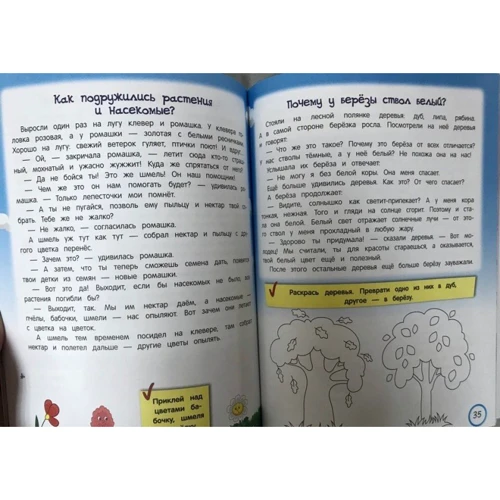 Как подружились растения
и насекомые?
Выросли один раз на лугу клевер и ромашка. У клевера
ловка розовая, а у ромашки — золотая с белыми ресничками.
Хорошо на лугу: свежий ветерок гуляет, птички поют! И вдруг...
— Ой, — закричала ромашка, — летит сюда кто-то
ный, мохнатый и ужасно жужжит! Куда же спрятаться от него?
— Да не бойся ты! Это же шмель! Он наш помощник!
— Чем же это он нам помогать будет? — удивилась
машка. — Только лепесточки мои помнёт.
— А ты не пугайся, позволь ему пыльцу и нектар твой
брать. Тебе же не жалко?
— Не жалко, — согласилась ромашка.
А шмель уж тут как тут — собрал нектар и пыльцу с
гого цветка перенёс.
— Зачем это? — удивилась ромашка.
— А затем, что ты теперь сможешь семена дать, появятся
твои детки из семян — новые ромашки.
— Вот это да! Выходит, если бы насекомых не было, все
растения погибли бы?
— Выходит, так. Мы им нектар даём, а насекомые —
пчёлы, бабочки, шмели — нас опыляют. Вот зачем они летают
с цветка на цветок.
А шмель тем временем посидел на клевере, там собрал
нектар и полетел дальше — другие цветы опылять.
Приклей над
цветами ба-
бочку, шмеля
Почему у берёзы ствол белый?
Стояли на лесной полянке деревья: дуб, липа, рябина.
А в самой стороне берёзка росла. Посмотрели на неё деревья
и говорят:
— Что же это такое? Почему это берёза от всех отличается?
У нас стволы тёмные, а у неё белый! Не похожа она на нас!
Услышала их берёза и отвечает:
— Не могу я без белой коры. Она меня спасает.
Ещё больше удивились деревья. Как это? От чего спасает?
А берёза продолжает:
— Видите, солнышко как светит-припекает! А у меня кора
тонкая, нежная. Того и гляди на солнце сгорит. Поэтому и ста-
ла она белой. Белый свет отражает солнечные лучи — от это-
го ствол у меня прохладный в любую жару.
— Здорово ты придумала! — сказали деревья. — Вот мо-
лодец! Мы считали, ты для красоты старалась, а оказывается,
твой белый цвет ещё и полезный.
После этого остальные деревья ещё больше берёзу зауважали.
Раскрась деревья. Преврати одно из них в дуб,
другое — в берёзу.
35